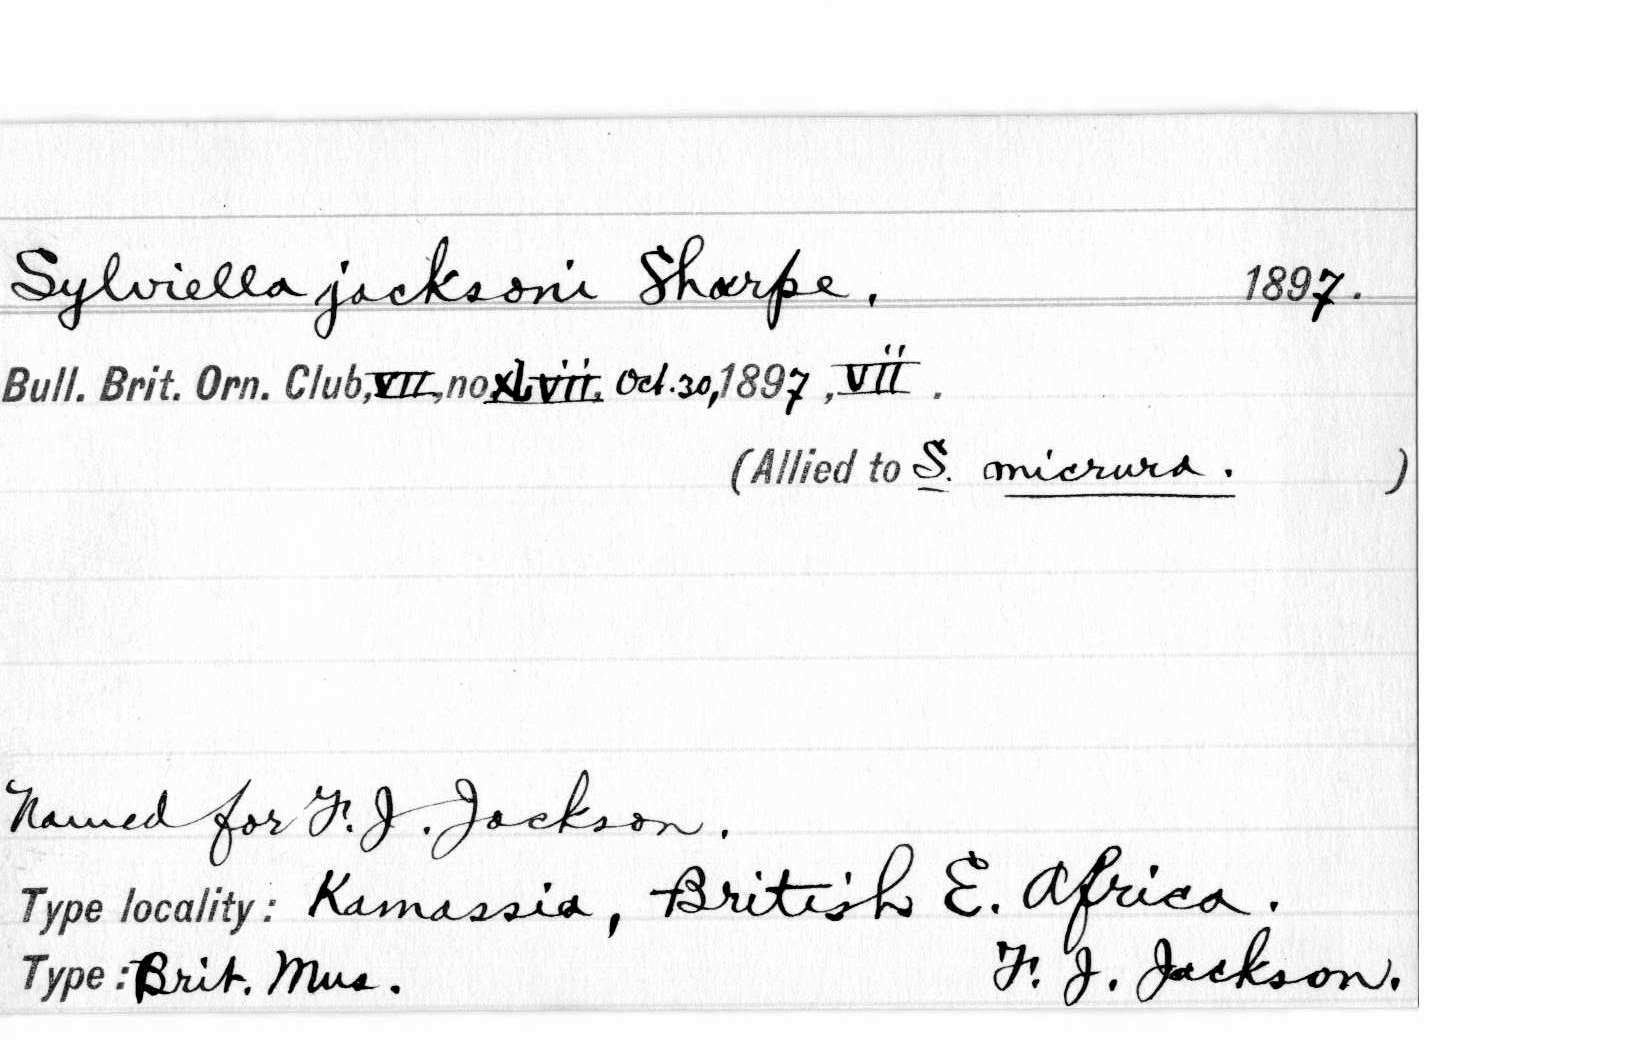 Sylviella jacksoni Sharpe. 1897.
Bull. Brit. Orn. Club, VII, no. XLvii, Oct. 30, 1897, vii.
(Allied to S. micrura. )
Named for F. J. Jackson.
Type locality: Kamassia, British E. Africa.
Type: Brit. Mus. F. J. Jackson.